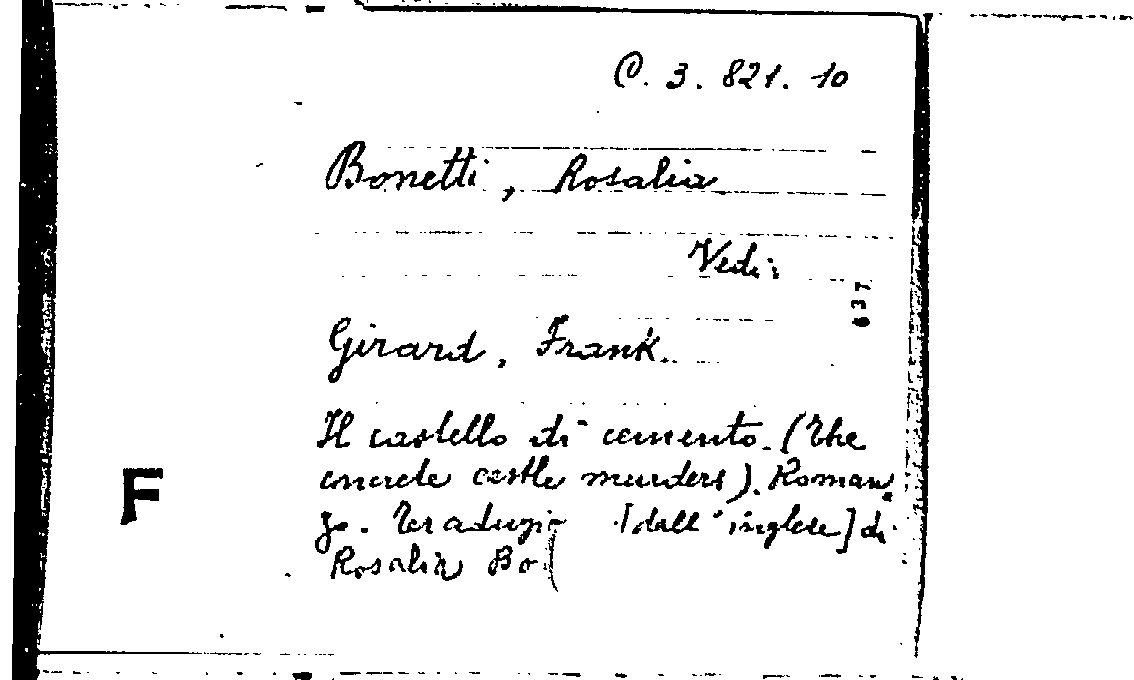 C. 3. 821. 10
Bonetti, Rosalia
Vedi:
637
Girard, Frank.
Il castello di cemento. (The
concrete castle murders). Roman,
zo. Traduzio [dall'inglese] di
F
Rosalia Bo